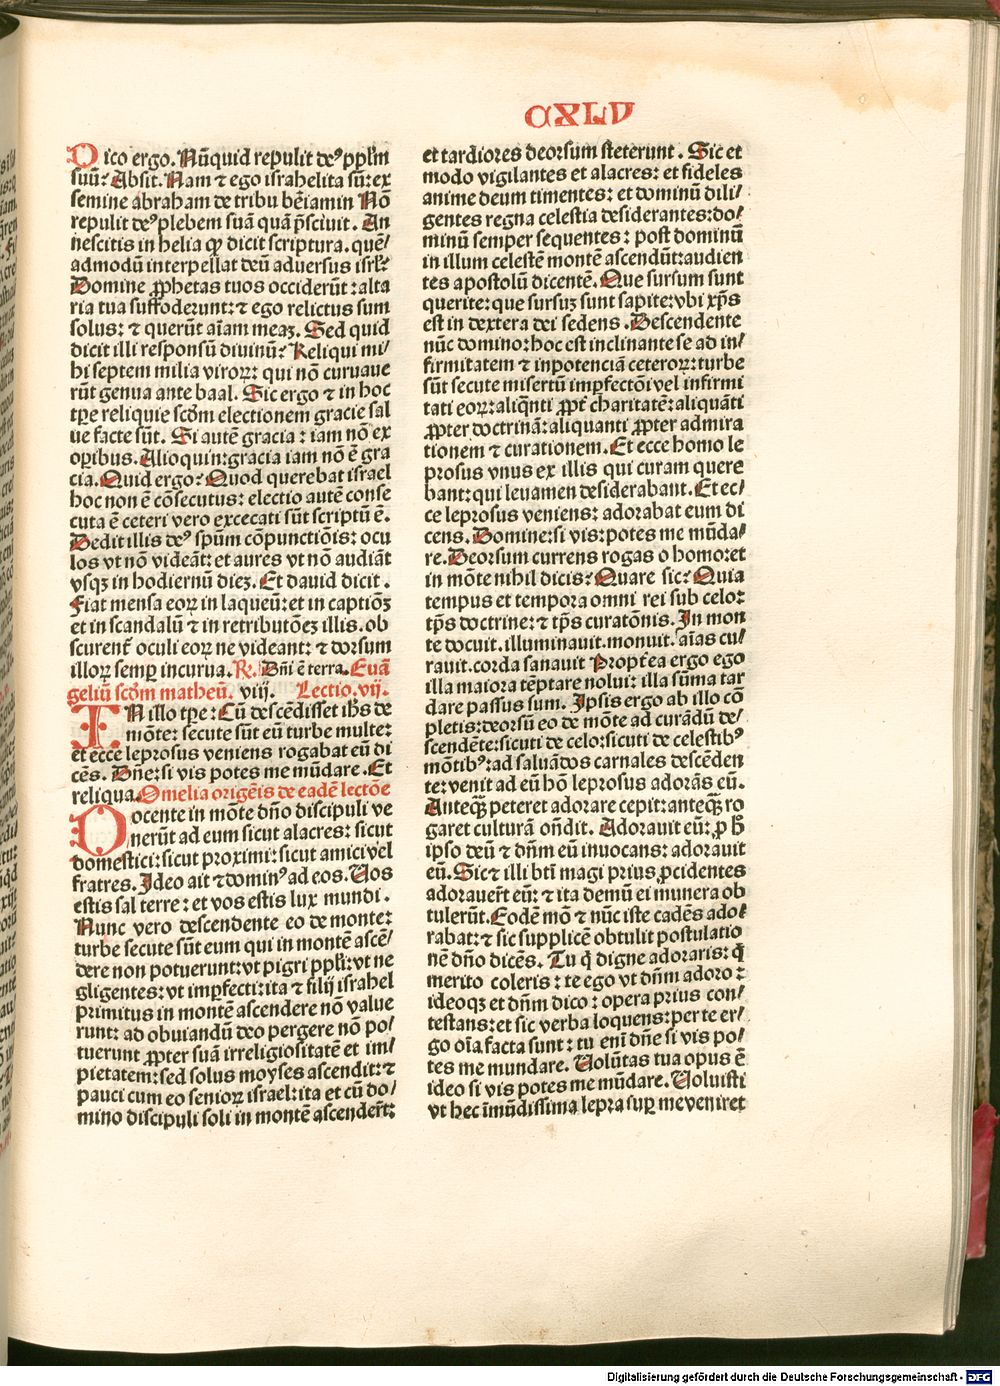 CXLV
Dico ergo. Nūquid repulit deꝰ pplm̄
suū? Absit. Nam ⁊ ego israhelita sū: ex
semine abraham de tribu bēiamin Nō
repulit deꝰ plebem suā quā p̄sciuit. An
nescitis in helia qꝫ dicit scriptura. quē/
admodū interpellat deū aduersus isrl̄?
Domine ꝓphetas tuos occiderūt: alta
ria tua suffoderunt: ⁊ ego relictus sum
solus: ⁊ querūt aīam meaꝫ. Sed quid
dicit illi responsū diuinū? Reliqui mi/
hi septem milia viroꝝ: qui nō curuaue
rūt genua ante baal. Sic ergo ⁊ in hoc
tꝑe reliquie scḋm electionem gracie sal
ue facte sūt. Si autē gracia: iam nō ex
oꝑibus. Alioquin: gracia iam nō ē gra
cia. Quid ergo? Quod querebat israel
hoc non ē cōsecutus: electio autē conse
cuta ē ceteri vero excecati sūt scriptū ē.
Dedit illis deꝰ spūm cōpunctiōis: ocu
los vt nō videāt: et aures vt nō audiāt
vsqꝫ in hodiernū dieꝫ. Et dauid dicit.
Fiat mensa eoꝝ in laqueū: et in captiōꝫ
et in scandalū ⁊ in retributōeꝫ illis. ob
scurent̄ oculi eoꝝ ne videant: ⁊ dorsum
illoꝝ semꝑ incurua. R̷. Dn̄i ē terra. Euā
geliū scḋm matheū. viij. Lectio. vij.
IN illo tꝑe: Cū descēdisset ih̄s de
mōte: secute sūt eū turbe multe:
et ecce leprosus veniens rogabat eū di
cēs. Dn̄e: si vis potes me mūdare. Et
reliqua. Omelia origēis de eadē lectōe
Docente in mōte dn̄o discipuli ve
nerūt ad eum sicut alacres: sicut
domestici: sicut proximi: sicut amici vel
fratres. Ideo ait ⁊ dominꝰ ad eos. Vos
estis sal terre: et vos estis lux mundi.
Nunc vero descendente eo de monte:
turbe secute sūt eum qui in montē ascē/
dere non potuerunt: vt pigri ppl̄i: vt ne
gligentes: vt imꝑfecti: ita ⁊ filij israhel
primitus in montē ascendere nō value
runt: ad obuiandū deo pergere nō po/
tuerunt ꝓpter suā irreligiositatē et im/
pietatem: sed solus moyses ascendit: ⁊
pauci cum eo senioꝝ israel: ita et cū do/
mino discipuli soli in montē ascendeēt:
et tardiores deorsum steterunt. Sic et
modo vigilantes et alacres: et fideles
anime deum timentes: et dominū dili/
gentes regna celestia desiderantes: do/
minū semper sequentes: post dominū
in illum celestē montē ascendūt: audien
tes apostolū dicentē. Que sursum sunt
querite: que sursuꝫ sunt sapite: vbi xp̄s
est in dextera dei sedens. Descendente
nūc domino: hoc est inclinante se ad in/
firmitatem ⁊ inpotenciā ceteroꝝ: turbe
sūt secute misertū imꝑfectōi vel infirmi
tati eoꝝ: aliqn̄ti ꝓpt̄ charitatē: aliquāti
ꝓpter doctrinā: aliquanti ꝓpter admira
tionem ⁊ curationem. Et ecce homo le
prosus vnus ex illis qui curam quere
bant: qui leuamen desiderabant. Et ec/
ce leprosus veniens: adorabat eum di
cens. Domine: si vis: potes me mūda/
re. Deorsum currens rogas o homo: et
in mōte nihil dicis? Quare sic? Quia
tempus et tempora omni rei sub celo:
tp̄s doctrine: ⁊ tp̄s curatōnis. In mon
te docuit. illuminauit. monuit. aīas cu/
rauit. corda sanauit Propt̄ea ergo ego
illa maiora tēptare nolui: illa sūma tar
dare passus sum. Ipsis ergo ab illo cō
pletis: deorsū eo de mōte ad curādū de/
scendēte: sicuti de celo: sicuti de celestibꝰ
mōtibꝰ: ad saluādos carnales descēden
te: venit ad eū hō leprosus adorās eū.
Anteqꝫ peteret adorare cepit: anteqꝫ ro
garet culturā on̄dit. Adorauit eū: ꝓ h̄
ipso deū ⁊ dn̄m eū inuocans: adorauit
eū. Sic ⁊ illi bt̄i magi prius ꝓcidentes
adorauer̄t eū: ⁊ ita demū ei munera ob
tulerūt. Eodē mō ⁊ nūc iste cadēs ado/
rabat: ⁊ sic supplicē obtulit postulatio
nē dn̄o dicēs. Tu q̄ digne adoraris: q̄
merito coleris: te ego vt dn̄m adoro:
ideoqꝫ et dn̄m dico: opera prius con/
testans: et sic verba loquens: per te er/
go oīa facta sunt: tu enī dn̄e si vis po/
tes me mundare. Volūtas tua opus ē
ideo si vis potes me mūdare. Voluisti
vt hec īmūdissima lepra suꝑ me veniret
Digitalisierung gefördert durch die Deutsche Forschungsgemeinschaft - DFG